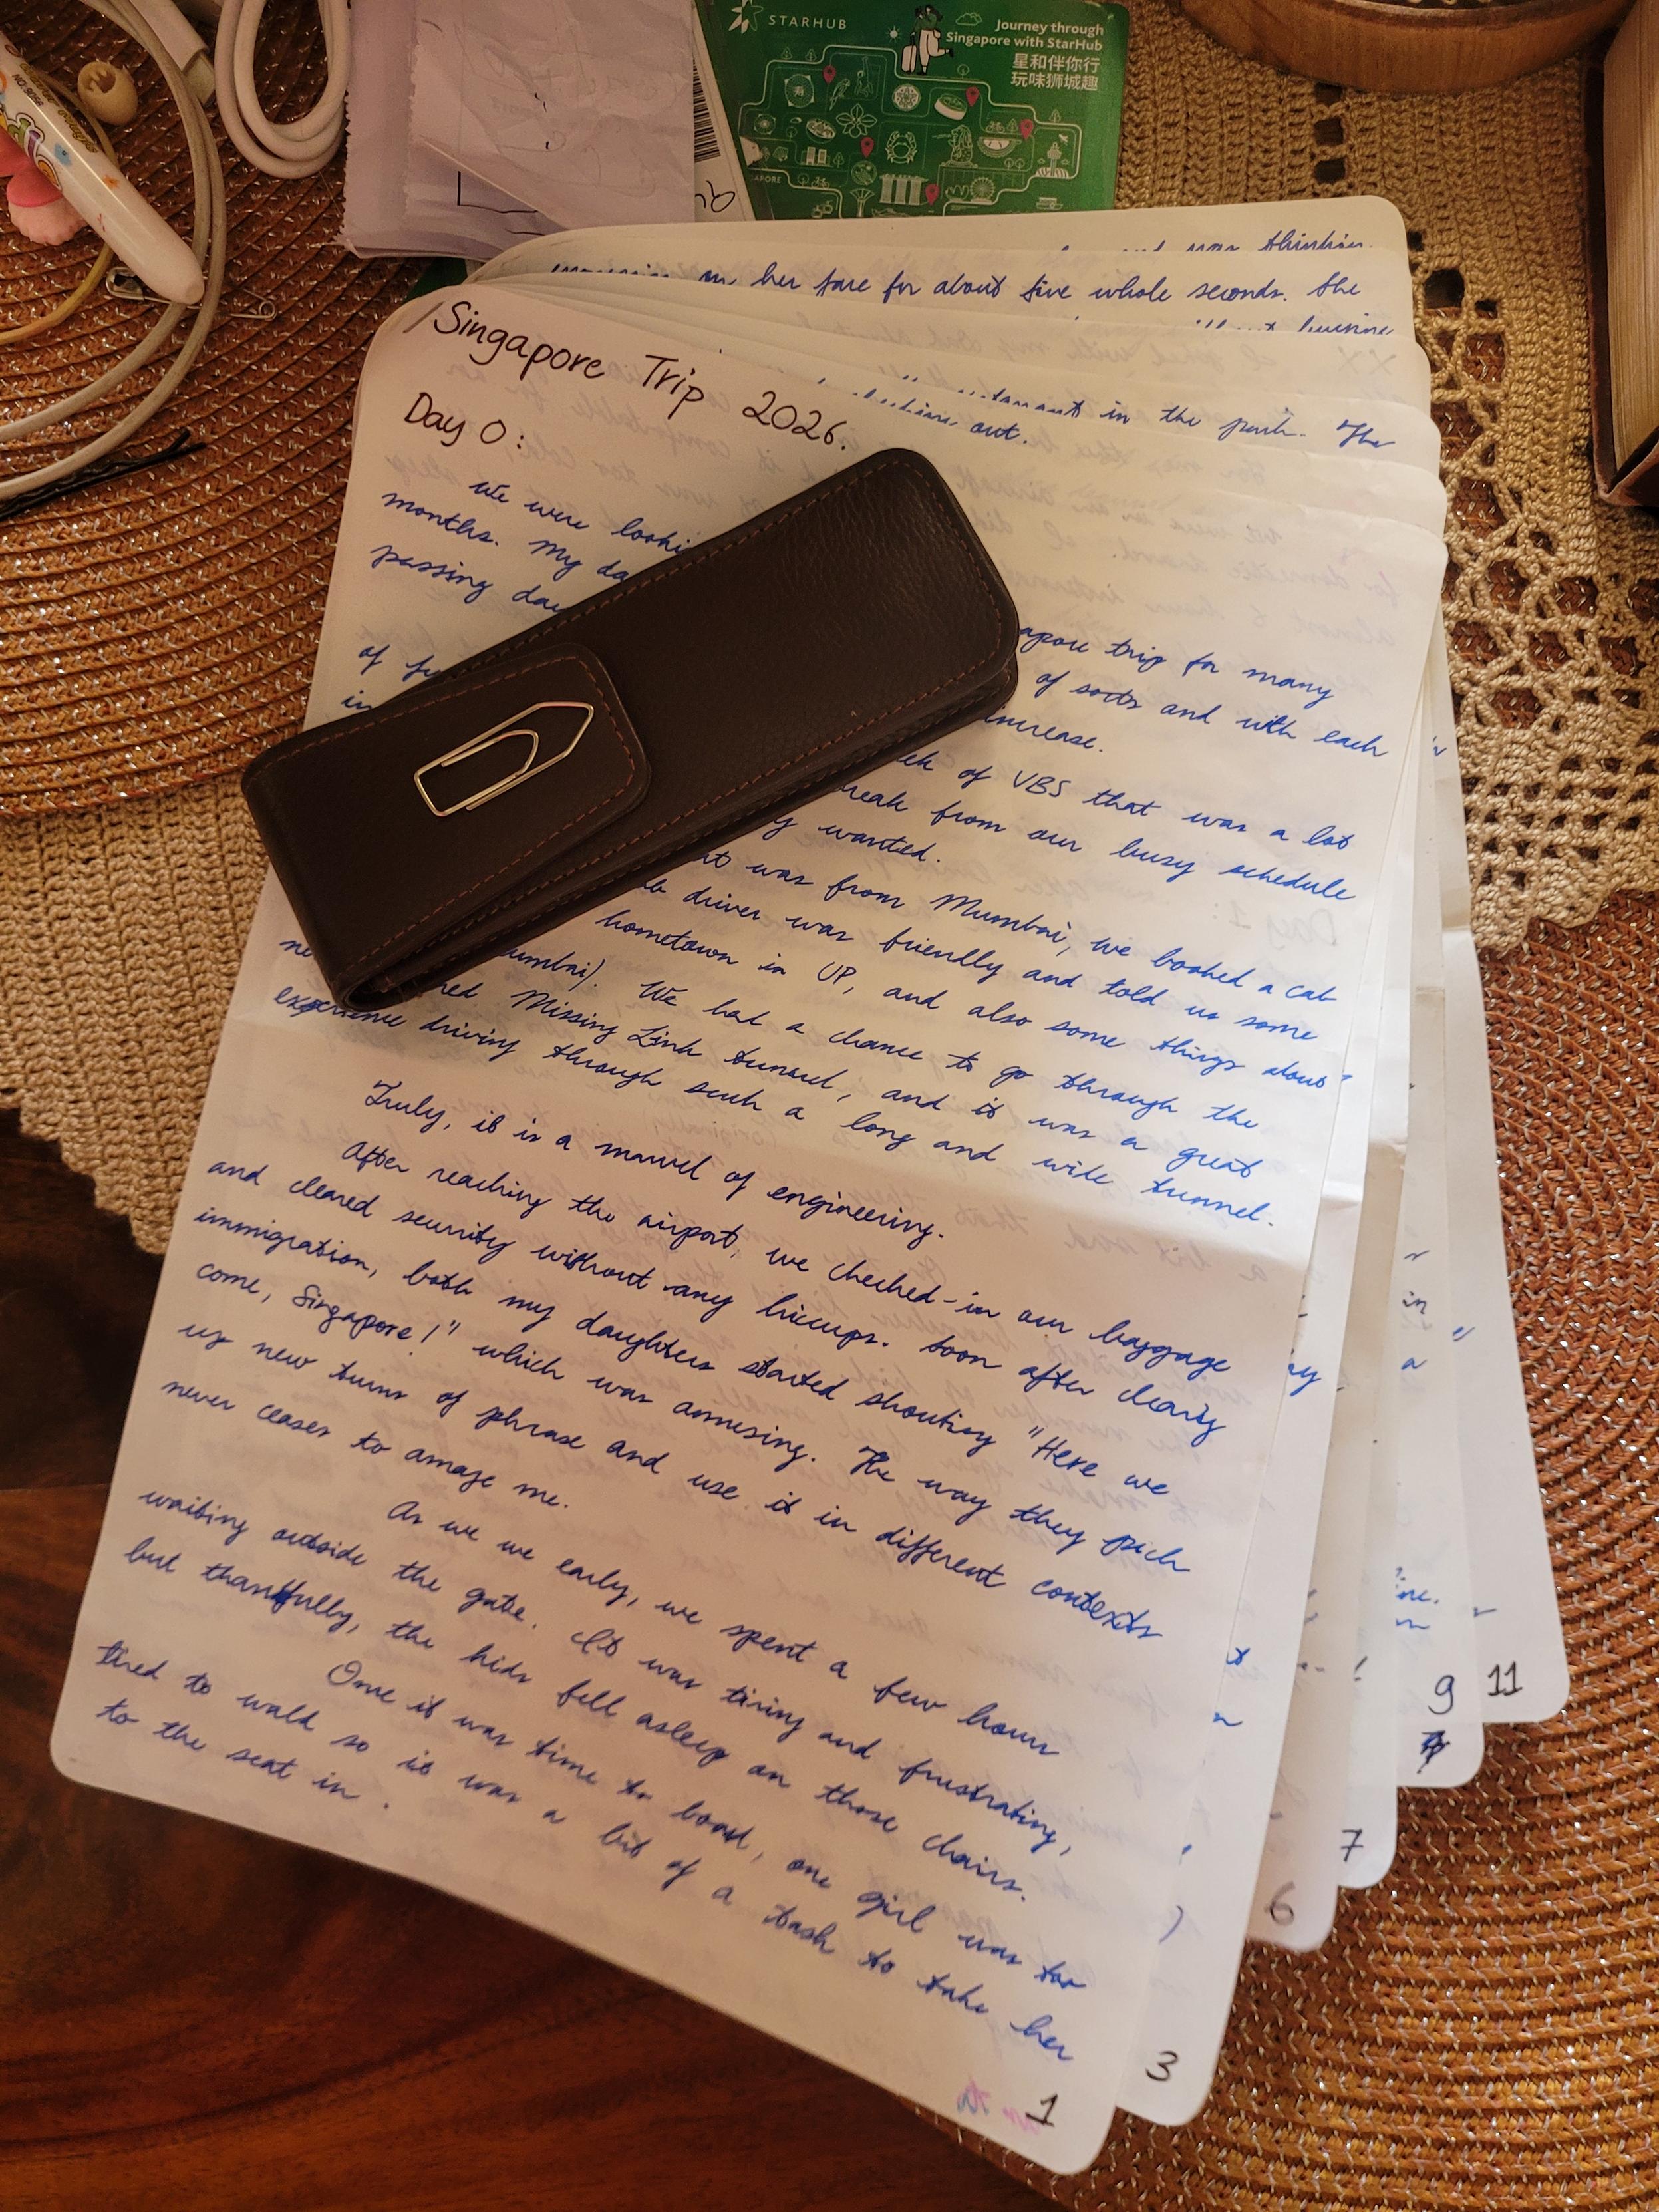 STARHUB
Journey through
Singapore with StarHub
星和伴你行
玩味狮城趣
NO.9022
thinkin
on her face for about five whole seconds. She
in the park. The
out.
Singapore Trip 2026.
Day 0:
We were looki apore trip for many
months. My da of sorts and with each
passing day increase.
of VBS that was a lot
of fu reak from our busy schedule
in y wanted.
was from Mumbai, we booked a cab
driver was friendly and told us some
hometown in UP, and also some things about
umbai). We had a chance to go through the
ne ned Missing Link tunnel, and it was a great
experience driving through such a long and wide tunnel.
Truly, it is a marvel of engineering.
After reaching the airport, we checked-in our baggage
and cleared security without any hiccups. Soon after clearing
immigration, both my daughters started shouting "Here we
come, Singapore!" which was amusing. The way they pick
up new turns of phrase and use it in different contexts
never ceases to amaze me.
As we we early, we spent a few hours
waiting outside the gate. It was tiring and frustrating,
but thankfully, the kids fell asleep on those chairs.
One it was time to board, one girl was too
tired to walk so it was a bit of a task to take her
to the seat in.
1
3
6
7
9
11